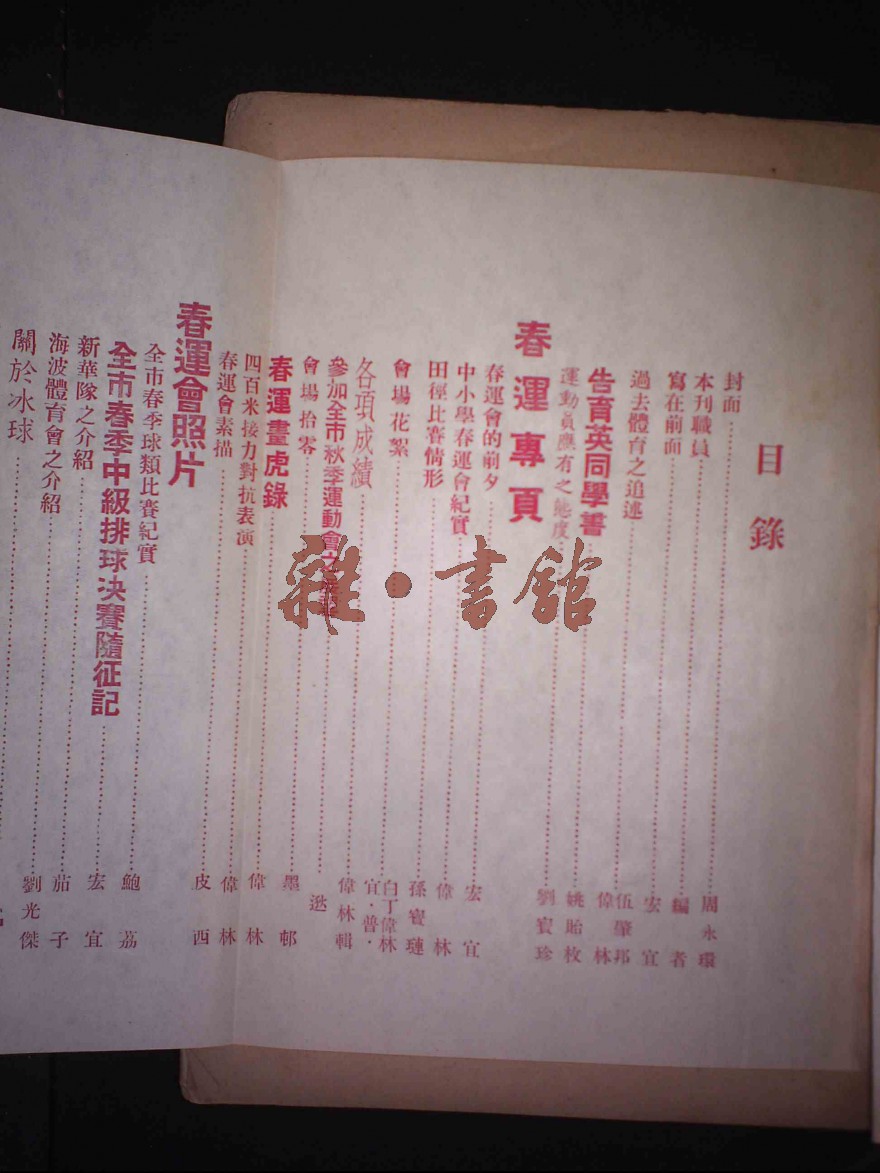 目錄
封面
本刊職員
寫在前面
過去體育之追述
告育英同學書
運動員應有之態度
春運專頁
春運會的前夕
中小學春運會紀實
田徑比賽情形
會場花絮
各項成績
參加全市秋季運動會之
會場拾零
春運畫虎錄
四百米接力對抗表演
春運會素描
春運會照片
全市春季球類比賽紀實
全市春季中級排球決賽隨征記
新華隊之介紹
海波體育會之介紹
關於冰球
周永環
編者
宏宜
伍肇邦
偉林
姚貽枚
劉寶珍
宏宜
偉林
孫寶璉
白丁偉林
宜·普·
偉林輯
逖
墨邨
偉林
偉林
皮西
鮑荔
宏宜
茄子
劉光傑
雜·書館